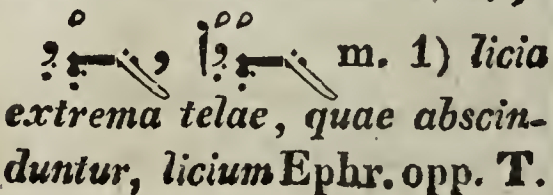 ܓܕܕ, ܓܕܕܐ m. 1) licia
extrema telae, quae abscin-
duntur, licium Ephr. opp. T.